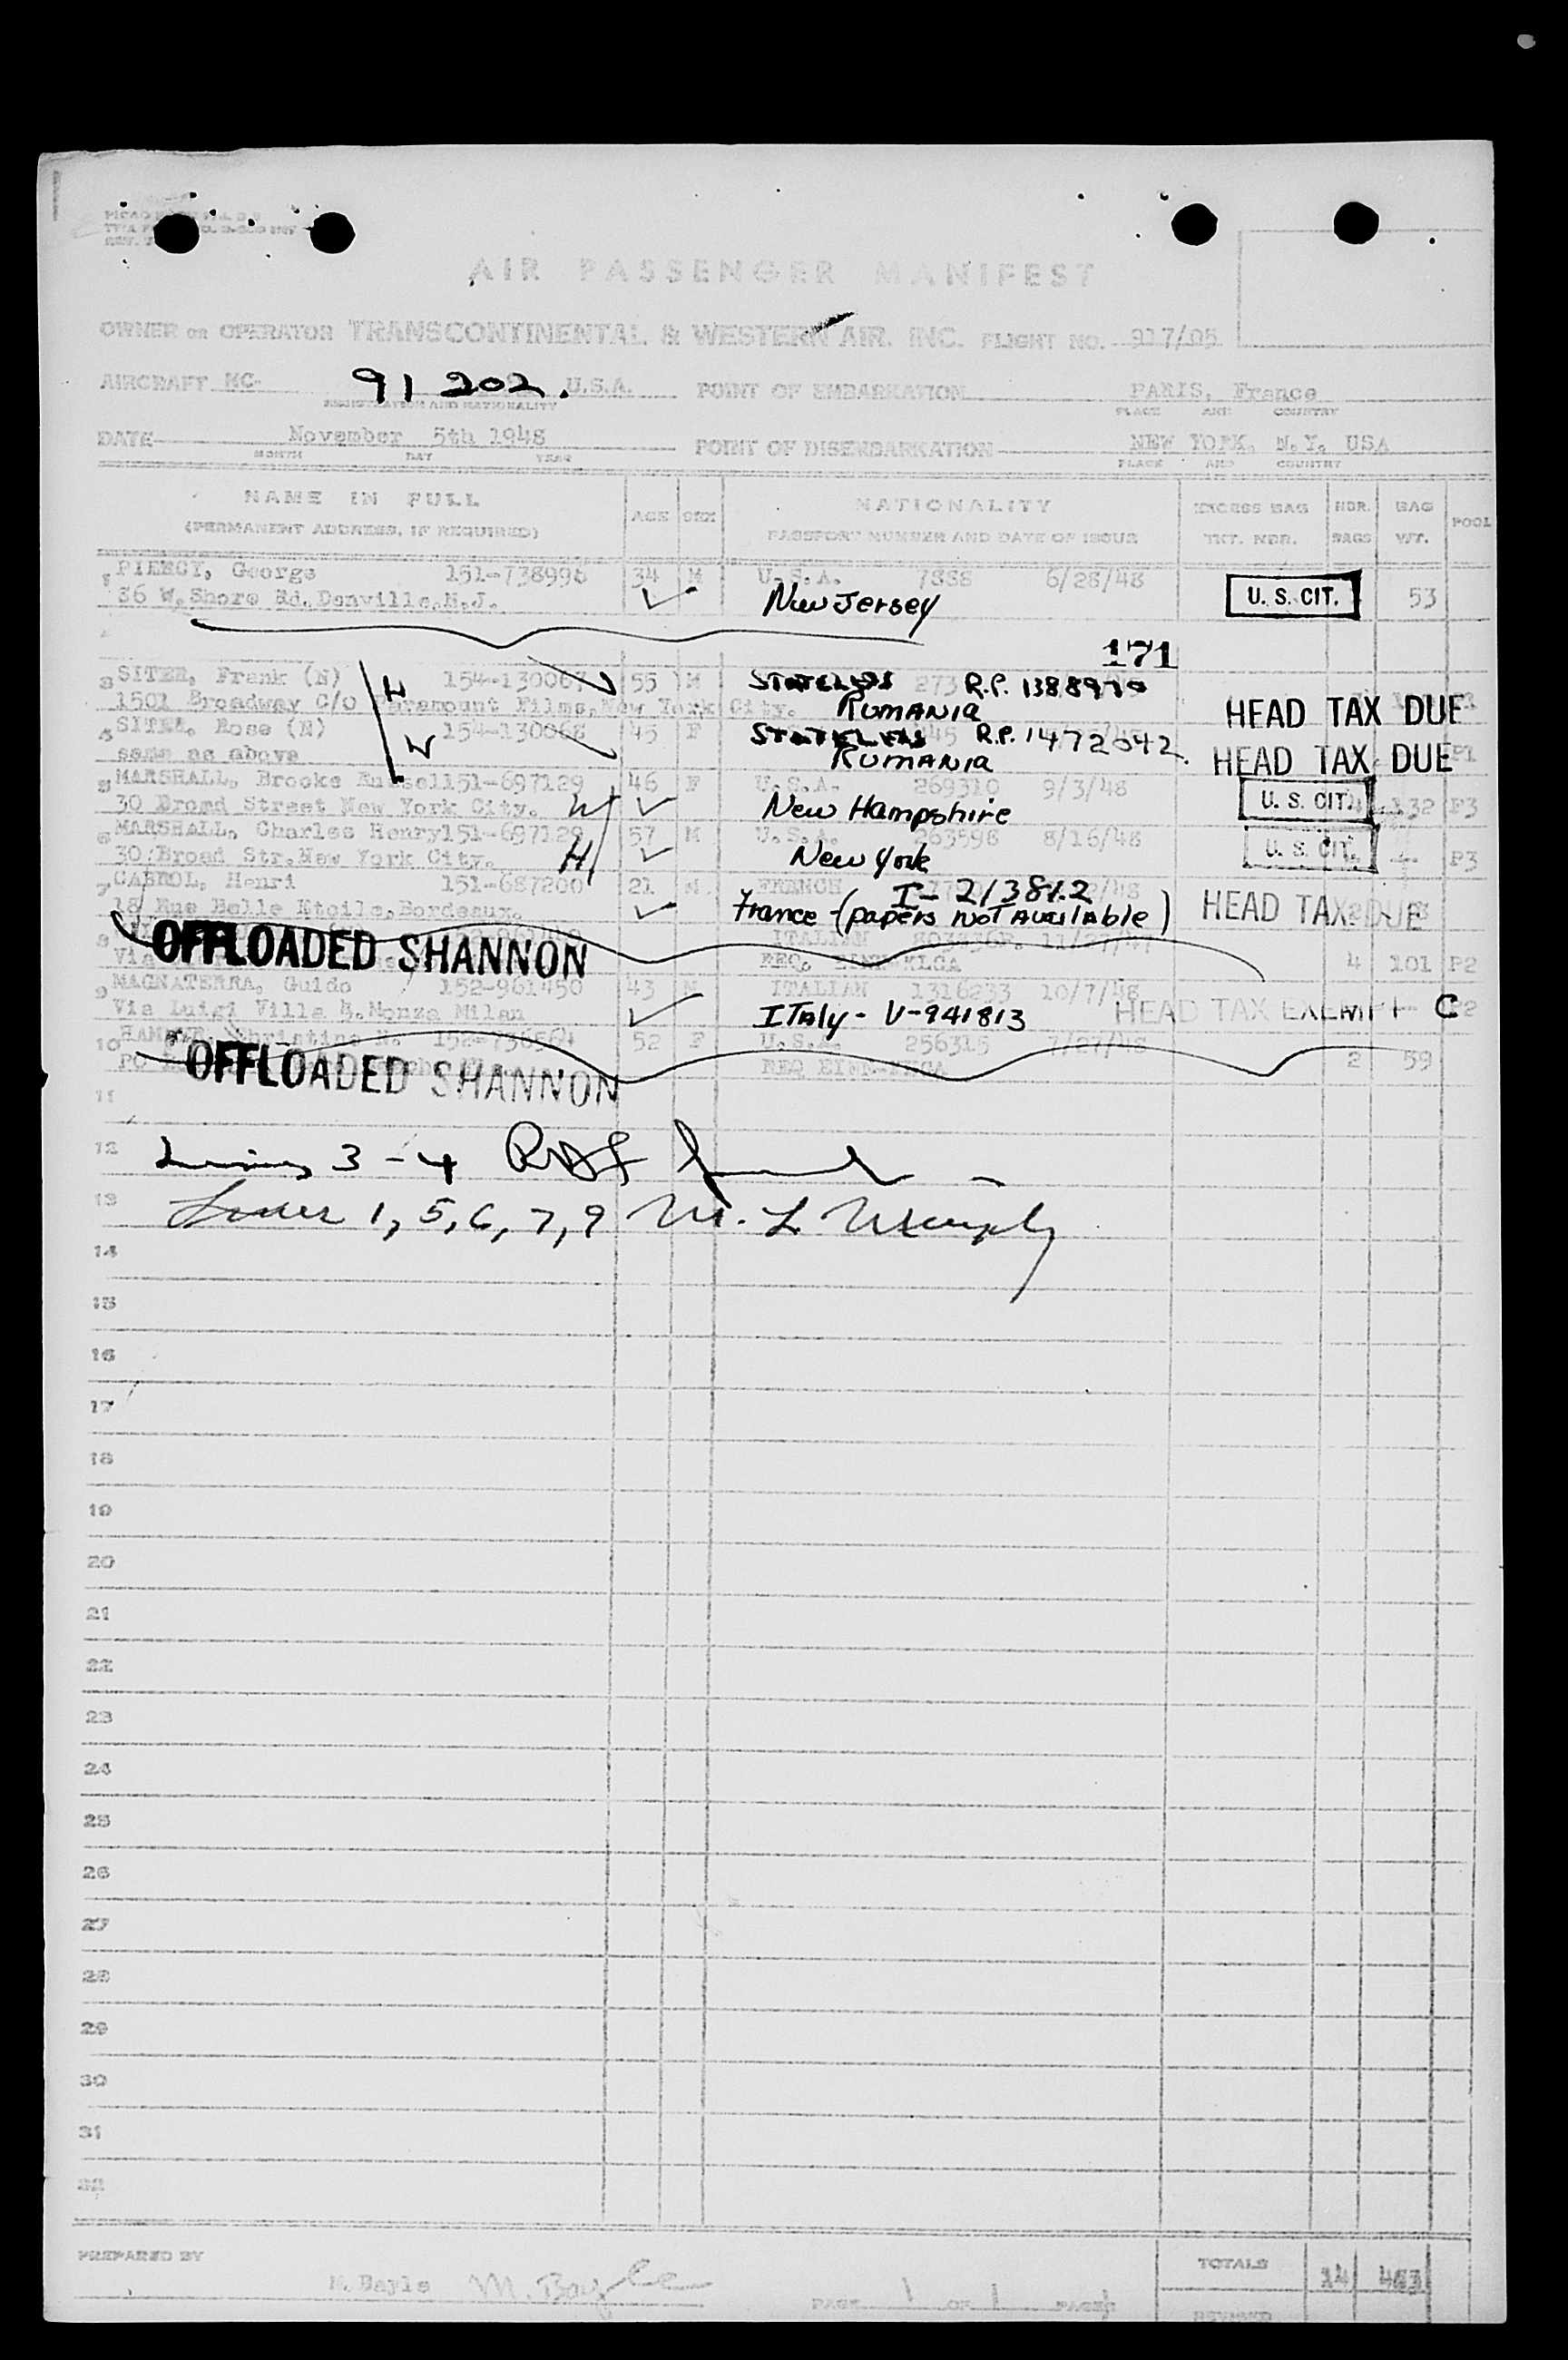 AIR PASSENGER MANIFEST
OWNER OR OPERATOR TRANSCONTINENTAL & WESTERN AIR, INC. FLIGHT NO. 917/05
AIRCRAFT NC- 91202. U.S.A. POINT OF EMBARKATION PARIS, France
REGISTRATION AND NATIONALITY PLACE AND COUNTRY
DATE November 5th 1948 POINT OF DISEMBARKATION NEW YORK, N.Y. USA
MONTH DAY YEAR PLACE AND COUNTRY
NAME IN FULL AGE SEX NATIONALITY EXCESS BAG NBR. BAG POOL
(PERMANENT ADDRESS, IF REQUIRED) PASSPORT NUMBER AND DATE OF ISSUE TKT. NBR. BAGS WT.
PIERCY, George 151-738996 34 M U.S.A. 7888 6/28/48
36 W. Shore Rd. Denville, N.J. New Jersey U. S. CIT. 53
171
3 SITER, Frank (N) 154-130067 55 M STATELESS 273 R.P. 1388970
1501 Broadway C/O Paramount Films, New York City. RUMANIA HEAD TAX DUE
SITER, Rose (N) 154-130068 45 F STATELESS R.P. 1472042
same as above RUMANIA HEAD TAX DUE P1
5 MARSHALL, Brooke Russell 151-697129 46 F U.S.A. 269310 9/3/48
30 Broad Street New York City. W New Hampshire U. S. CIT. 132 P3
6 MARSHALL, Charles Henry 151-697129 57 M U.S.A. 263598 8/16/48
30 Broad Str. New York City. H New York U. S. CIT. P3
7 CABROL, Henri 151-687200 21 M FRENCH I-213812
18 Rue Belle Etoile, Bordeaux. France - (papers not available) HEAD TAX DUE
8 OFFLOADED SHANNON ITALIAN
Via REQ. 4 101 P2
9 MAGNATERRA, Guido 152-961450 43 M ITALIAN 1316233 10/7/48
Via Luigi Villa 4. Monza Milan ITALY - V-941813 HEAD TAX EXEMPT C P2
10 Christine M. 152-736564 52 F U.S.A. 256315 7/27/48
OFFLOADED SHANNON REQ 2 59
11
12 Lines 3-4
13 Lines 1, 5, 6, 7, 9 M. L.
14
15
16
17
18
19
20
21
22
23
24
25
26
27
28
29
30
31
32
PREPARED BY TOTALS 14
M. Bayle M. Bayle PAGE 1 OF 1 PAGES
REVISED